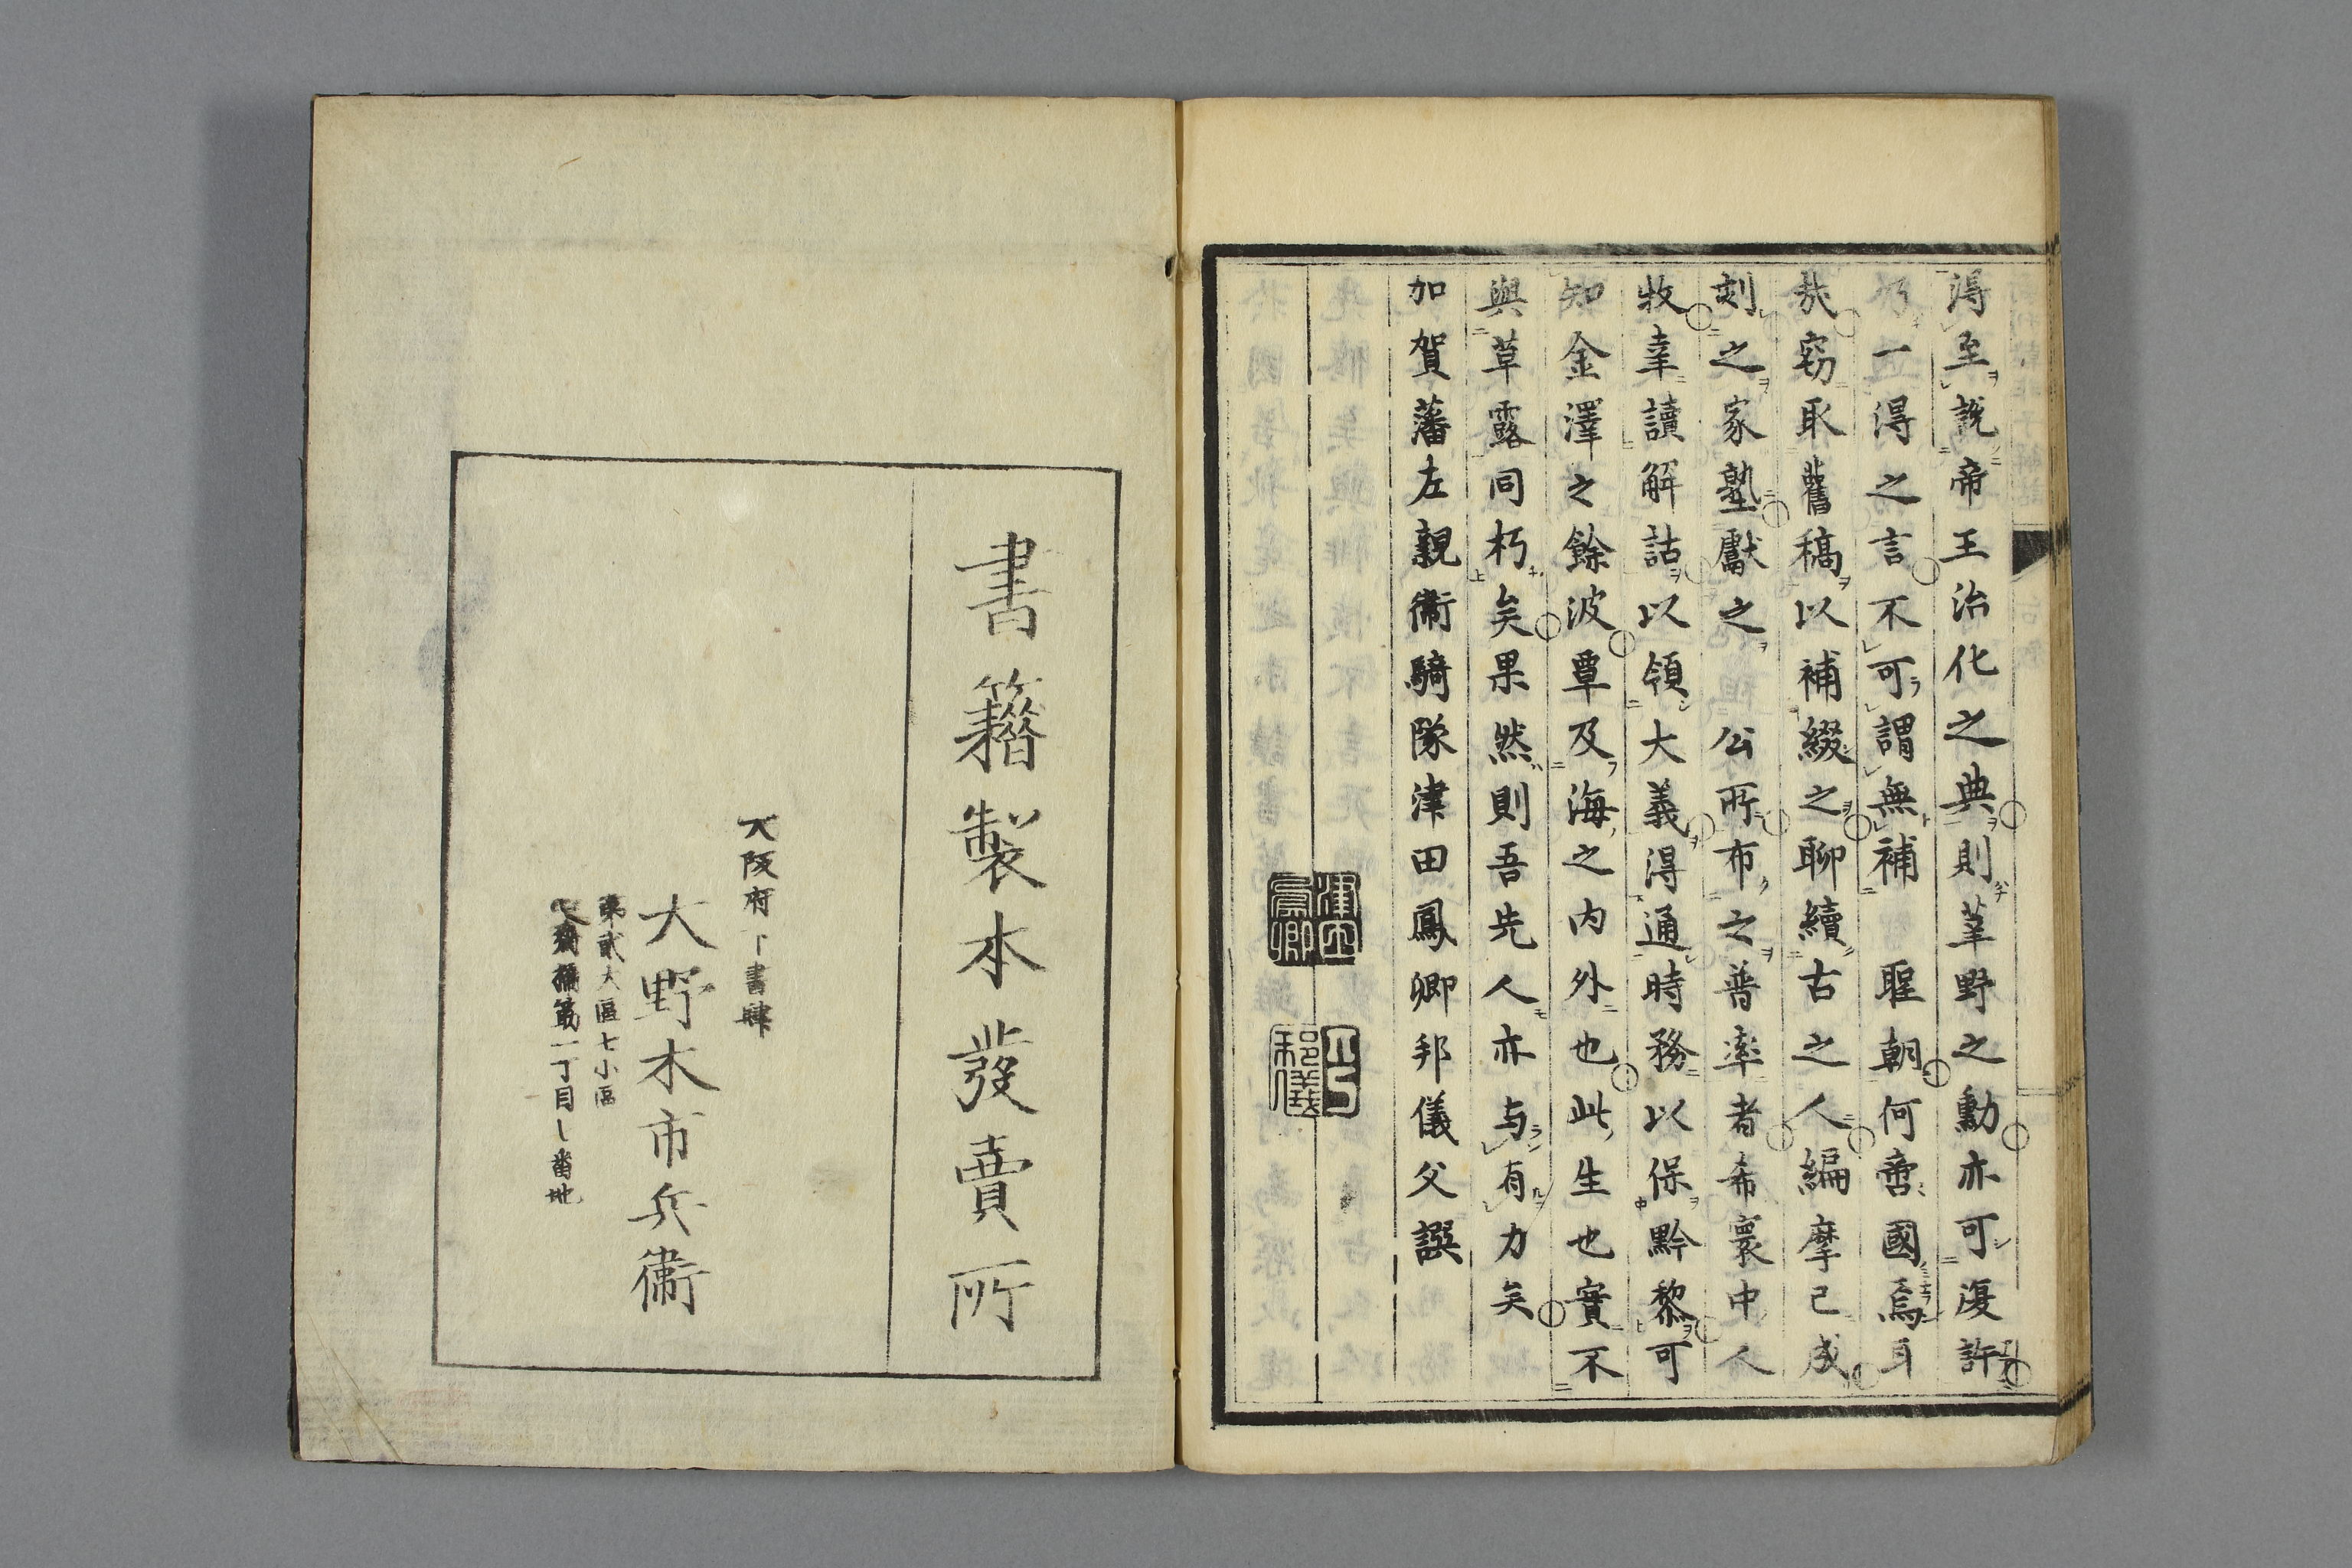 得至說帝王治化之典則莘野之勳亦可復許
一得之言不可謂無補 聖朝何啻國焉耳
哉窃取舊稿以補綴之聊續古之人編摩已成
刻之家塾獻之 公所布之普率者希寰中人
牧幸讀解詁以領大義得通時務以保黔黎可
知金澤之餘波覃及海之内外也此生也實不
與草露同朽矣果然則吾先人亦与有力矣
加賀藩左親衞騎隊津田鳳卿邦儀父譔
津田鳳卿
邦儀
書籍製本發賣所
大阪府下書肆
大野木市兵衞
第貳大區七小區
心齋橋筋一丁目 番地